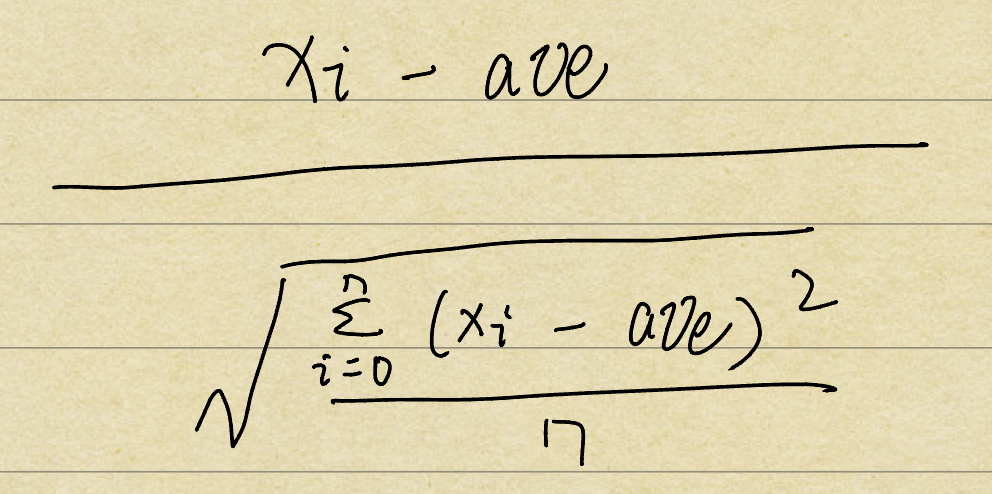 xi - ave
√ n Σ i=0 (xi - ave)²
n